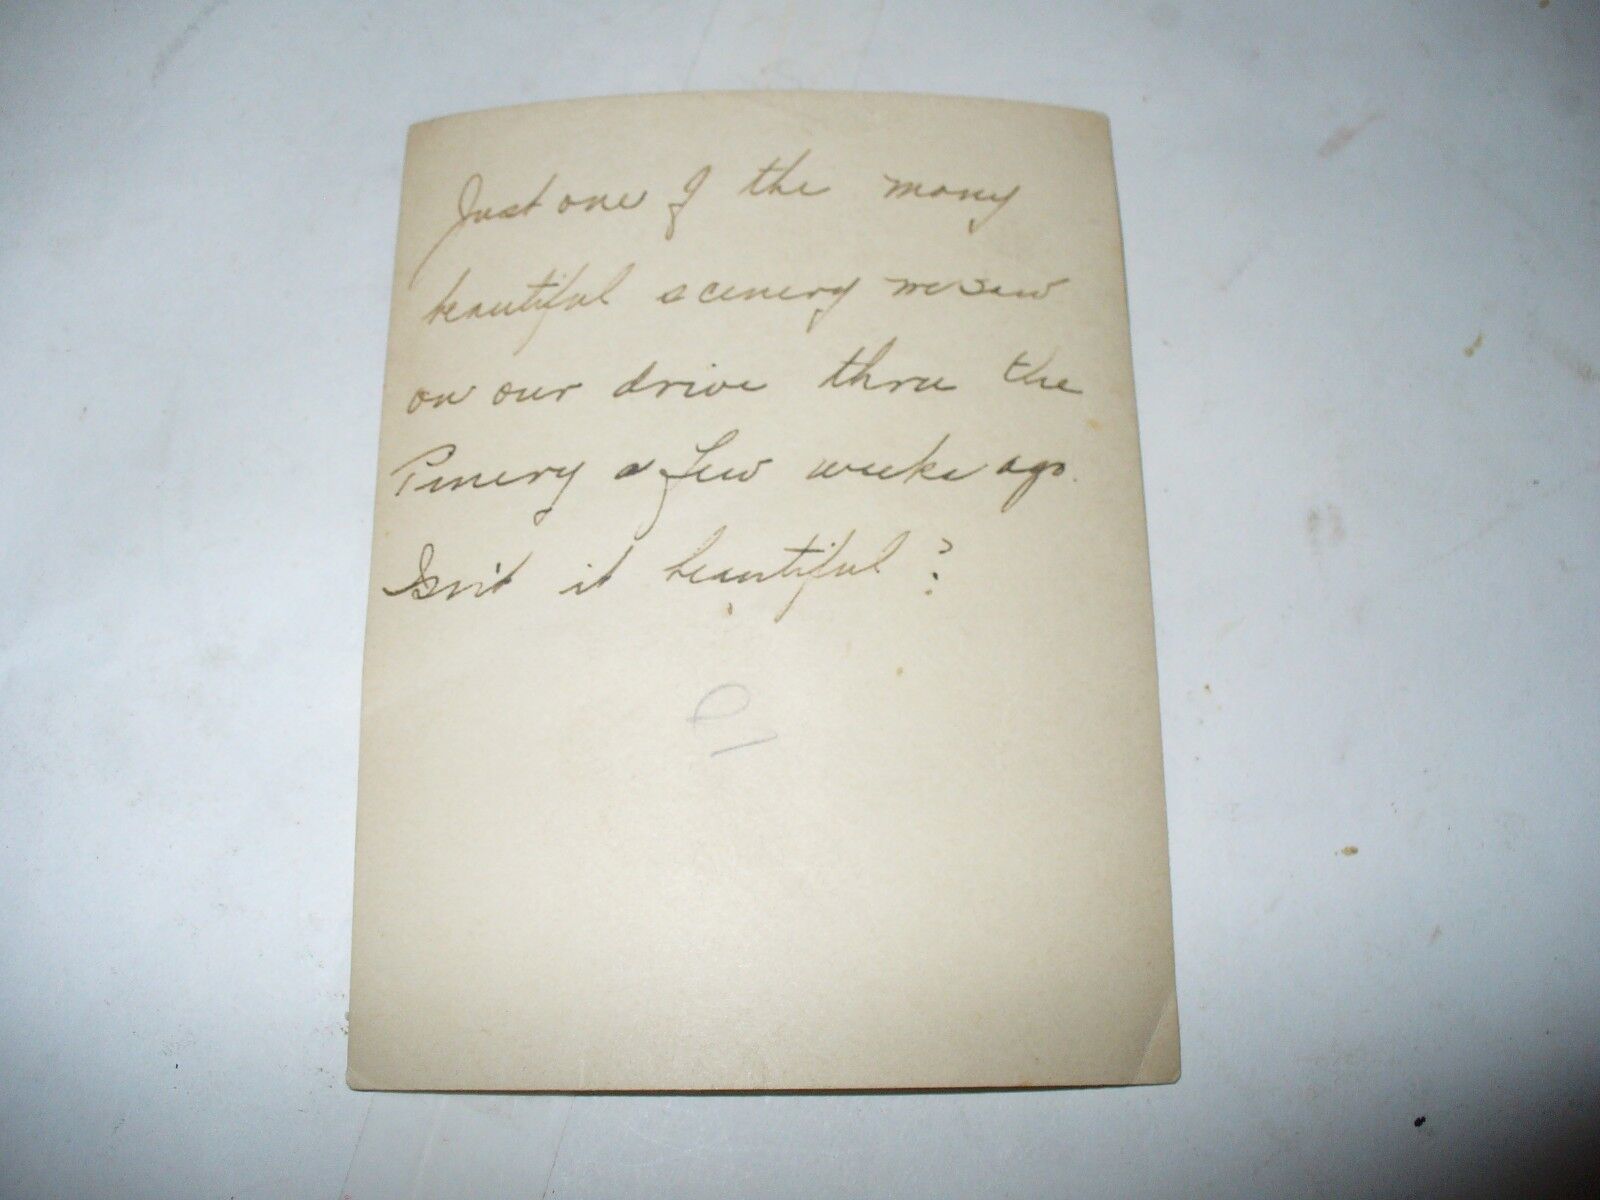 Just one of the many
beautiful scenery we saw
on our drive thru the
Pinery a few weeks ago.
Isn't it beautiful?